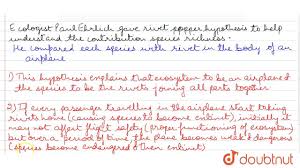 Ecologist Paul Ehrlich gave rivet popper hypothesis to help
understand the contribution species richness -
He compared each species with rivet in the body of an
airplane
1) This hypothesis explains that ecosystem to be an airplane &
the species to be the rivets joining all parts together
2) If every passenger travelling in the airplane start taking
rivets home (causing species to become extinct), initially it
may not affect flight safety (proper functioning of ecosystem)
but over a period of time, the plane becomes weak & dangerous
(species become endangered & then extinct)
doubtnut